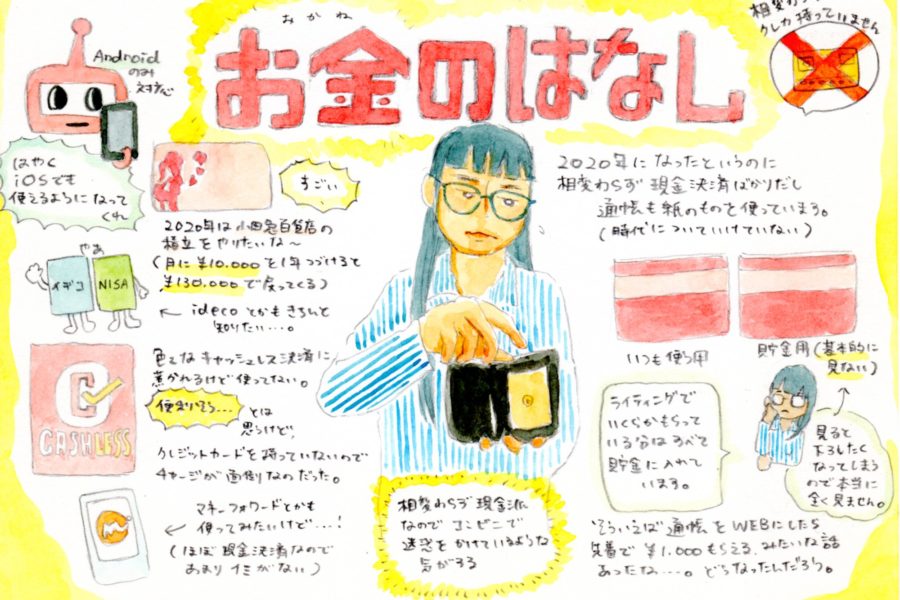 おかね
お金のはなし
Androidのみ
対応
はやく
iOSでも
使えるようになって
くれ
すごい
2020年は小田急百貨店の
積立をやりたいな〜
(月に¥10.000を1年つづけると
¥130.000で戻ってくる)
やあ
イデコ
NISA
← idecoとかもきちんと
知りたい…。
色々なキャッシュレス決済に
惹かれるけど使ってない。
便利そう…
とは
思うけど!
クレジットカードを持っていないので
チャージが面倒なのだった。
CASHLESS
← マネーフォワードとかも
使ってみたいけど…!
(ほぼ現金決済なので
あまりイミがない)
相変わらず現金派
なのでコンビニで
迷惑をかけているような
気がする
クレカ持っていません
2020年になったというのに
相変わらず現金決済ばかりだし
通帳も紙のものを使っています。
(時代についていけていない)
いつも使う用
貯金用(基本的に
見ない)
ライティングで
いくらかもらって
いる分はすべて
貯金に入れて
います。
見ると
下ろしたく
なってしまう
ので本当に
全く見ません。
そういえば通帳をWEBにしたら
先着で¥1.000もらえるみたいな話
あったな…。どうなったんだろう。